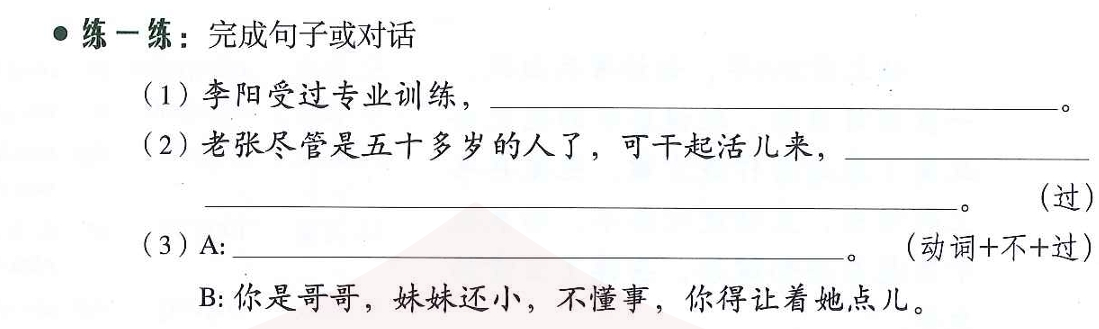 ● 练一练：完成句子或对话
（1）李阳受过专业训练，____________________。
（2）老张尽管是五十多岁的人了，可干起活儿来，__________
____________________。 （过）
（3）A: ____________________。 （动词+不+过）
B: 你是哥哥，妹妹还小，不懂事，你得让着她点儿。